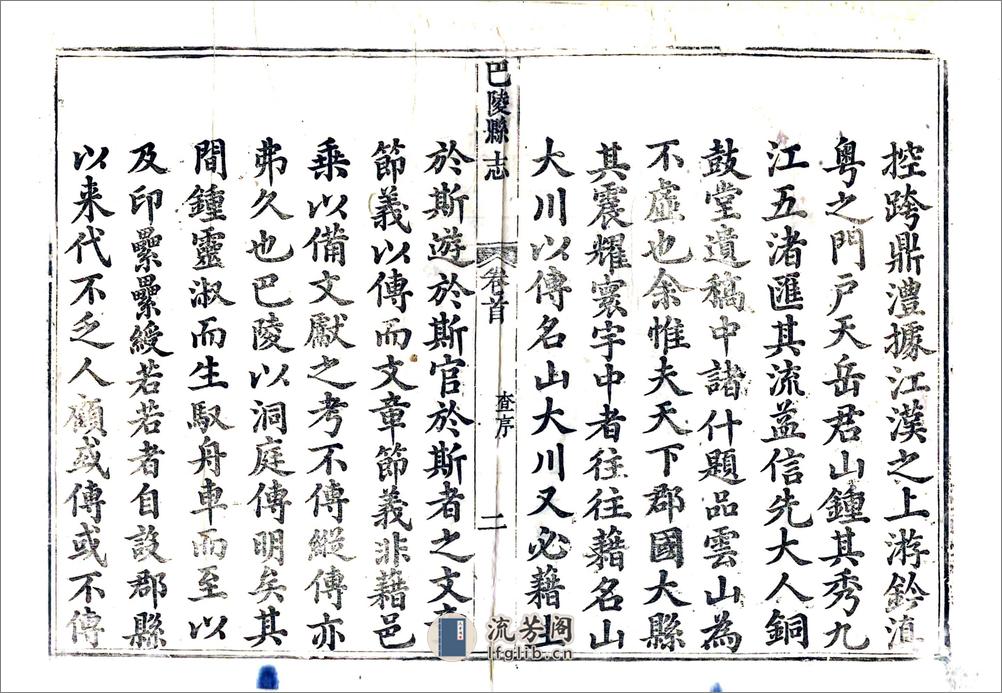 控跨鼎澧據江漢之上游鈐滇
粤之門戸天岳君山鍾其秀九
江五渚匯其流益信先大人銅
鼓堂遺稿中諸什題品雲山為
不虛也余惟夫天下郡國大縣
其震耀寰宇中者往往藉名山
大川以傳名山大川又必藉生
巴陵縣志
卷首
查序
二
於斯遊於斯官於斯者之文章
節義以傳而文章節義非藉邑
乘以備文獻之考不傳縱傳亦
弗久也巴陵以洞庭傳明矣其
間鍾靈淑而生馭舟車而至以
及印纍纍綬若若者自設郡縣
以来代不乏人顧或傳或不傳
流芳阁
lfglib.cn